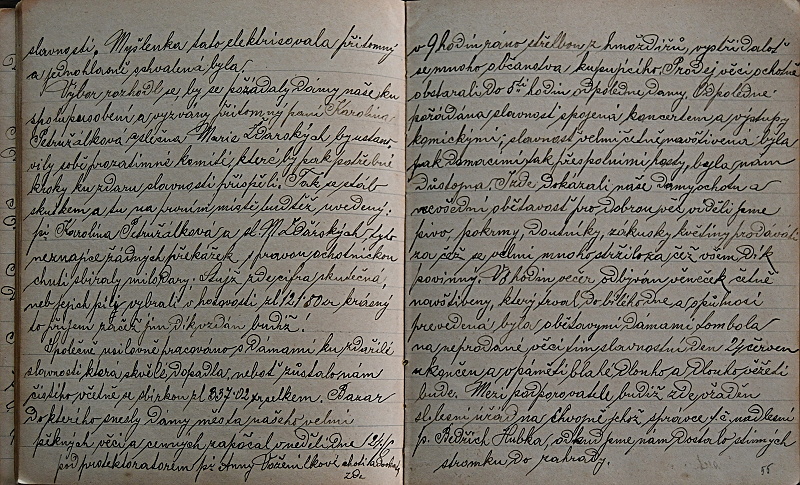 slavnosti. Myšlenka tato elektrisovala přítomný
a jednohlasně schválena byla.
Výbor rozhodl se, by se požádaly Dámy naše ku
spoluspůsobem a vyzvány přítomný paní Karolina
Petružálková a slečna Marie Žďarských by ustano-
vily sobě prozatimné komité, které by pak potřebné
kroky ku zdaru slavnosti přispěli. Tak se stalo
skutkem a tu na prvním místě buďtež uvedeny.
pí Karolina Petružálkova a sl. M. Žďářských, tyto
neznajíce žádných překážek s pravou ochotnickou
chutí sbíraly milodary. Stůjž zde cifra skutečná,
neb jejich píly vybrali v hotovosti zl 121·80 kr krásný
to příjem začež jim Dík vzdán budiž.
Společně usilovně pracováno s Dámami ku zdařilé
slavnosti která skvěle dopadla, neboť zůstalo nám
čistého včetně se sbírkou zl 337·02 kr celkem. Bazar
do kterého snesly Dámy města našeho velmi
pěkných věcí a cenných započal v neděli dne 24/6
pod protektoratem pí Anny Voženílkové
zde
v 9 hodin ráno střelbou z hmoždířů, vystřídalo
se mnoho občanstva kupujícího. Prodej věcí ochotně
obstarali do 5té hodin odpoledne damy. Odpoledne
pořádána slavnost spojená koncertem a výstupy
komickými; slavnost velmi četně navštívená byla
jak domácími tak přespolními hosty, byla nám
důstojna. I zde dokázali naše damy ochotu a
nevšední obětavost pro dobrou věc viděli jsme
pivo, pokrmy, doutníky, zákusky květiny prodávati
za což se velmi mnoho stržilo za čež všem Dík
povinny. V 8 hodin večer odbýván věneček četně
navštíveny, který trval do bílého dne a o půlnoci
prevedena byla obětavými dámami tombola
na neprodané věci tím slavnostní den 24 červen
ukončen a v paměti blahé Dlouho a Dlouho vězeti
bude. Mezi podporovatele budiž zde vřaděn
sl. lesní úřad na Chvojně jehož správce t. č. nadlesní
p. Bedřich Hubka, odkud jsme nám dostalo stinných
stromků do zahrady.
55